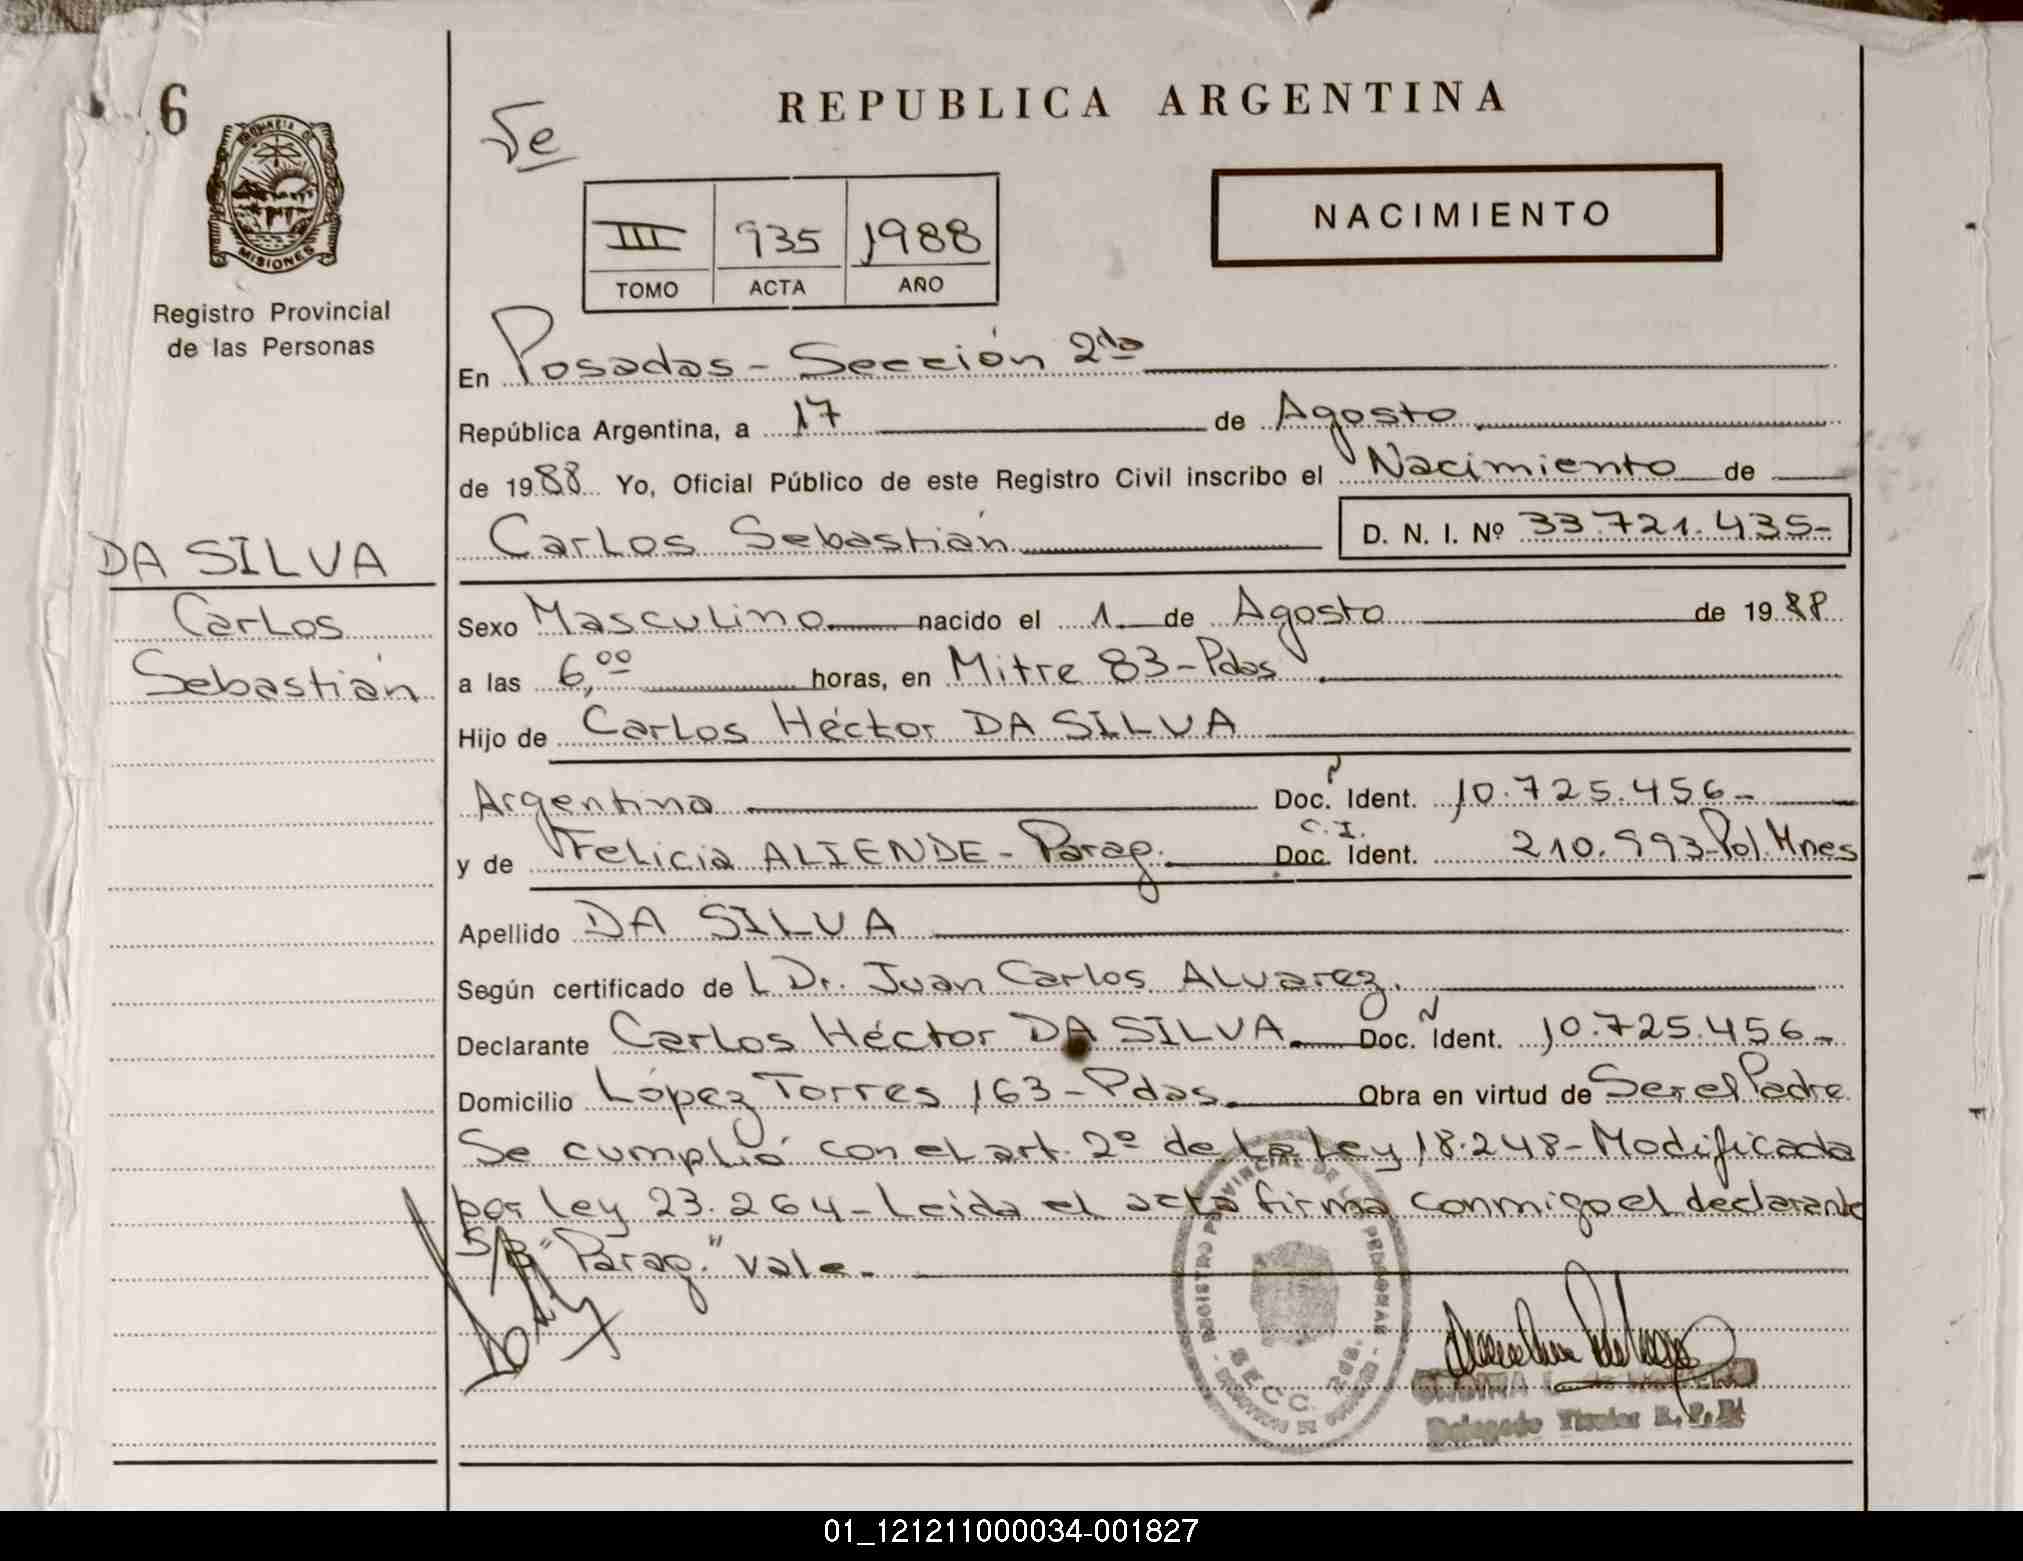 6
PROVINCIA DE
MISIONES
Registro Provincial
de las Personas
REPUBLICA ARGENTINA
NACIMIENTO
III 935 1988
TOMO ACTA AÑO
En Posadas - Sección 2da
República Argentina, a 17 de Agosto
de 1988 Yo, Oficial Público de este Registro Civil inscribo el Nacimiento de
Carlos Sebastián D. N. I. Nº 33.721.435-
DA SILVA
Carlos
Sebastián
Sexo Masculino nacido el 1 de Agosto de 1988
a las 6,00 horas, en Mitre 83-Pdas
Hijo de Carlos Héctor DA SILVA
Argentino Doc. Ident. 10.725.456-
C.I.
y de Felicia ALIENDE - Parag. Doc. Ident. 210.993-Pol. Mnes
Apellido DA SILVA
Según certificado de L Dr. Juan Carlos Alvarez.
Declarante Carlos Héctor DA SILVA Doc. Ident. 10.725.456-
Domicilio López Torres 163-Pdas. Obra en virtud de Ser el Padre
Se cumplió con el art. 2º de la Ley 18.248-Modificada
por ley 23.264-Leida el acta firma conmigo el declarante
S/R "Parag." vale.
REGISTRO PROVINCIAL DE LAS PERSONAS
SECC. 2da.
Delegado Titular R. P. P.
01_121211000034-001827